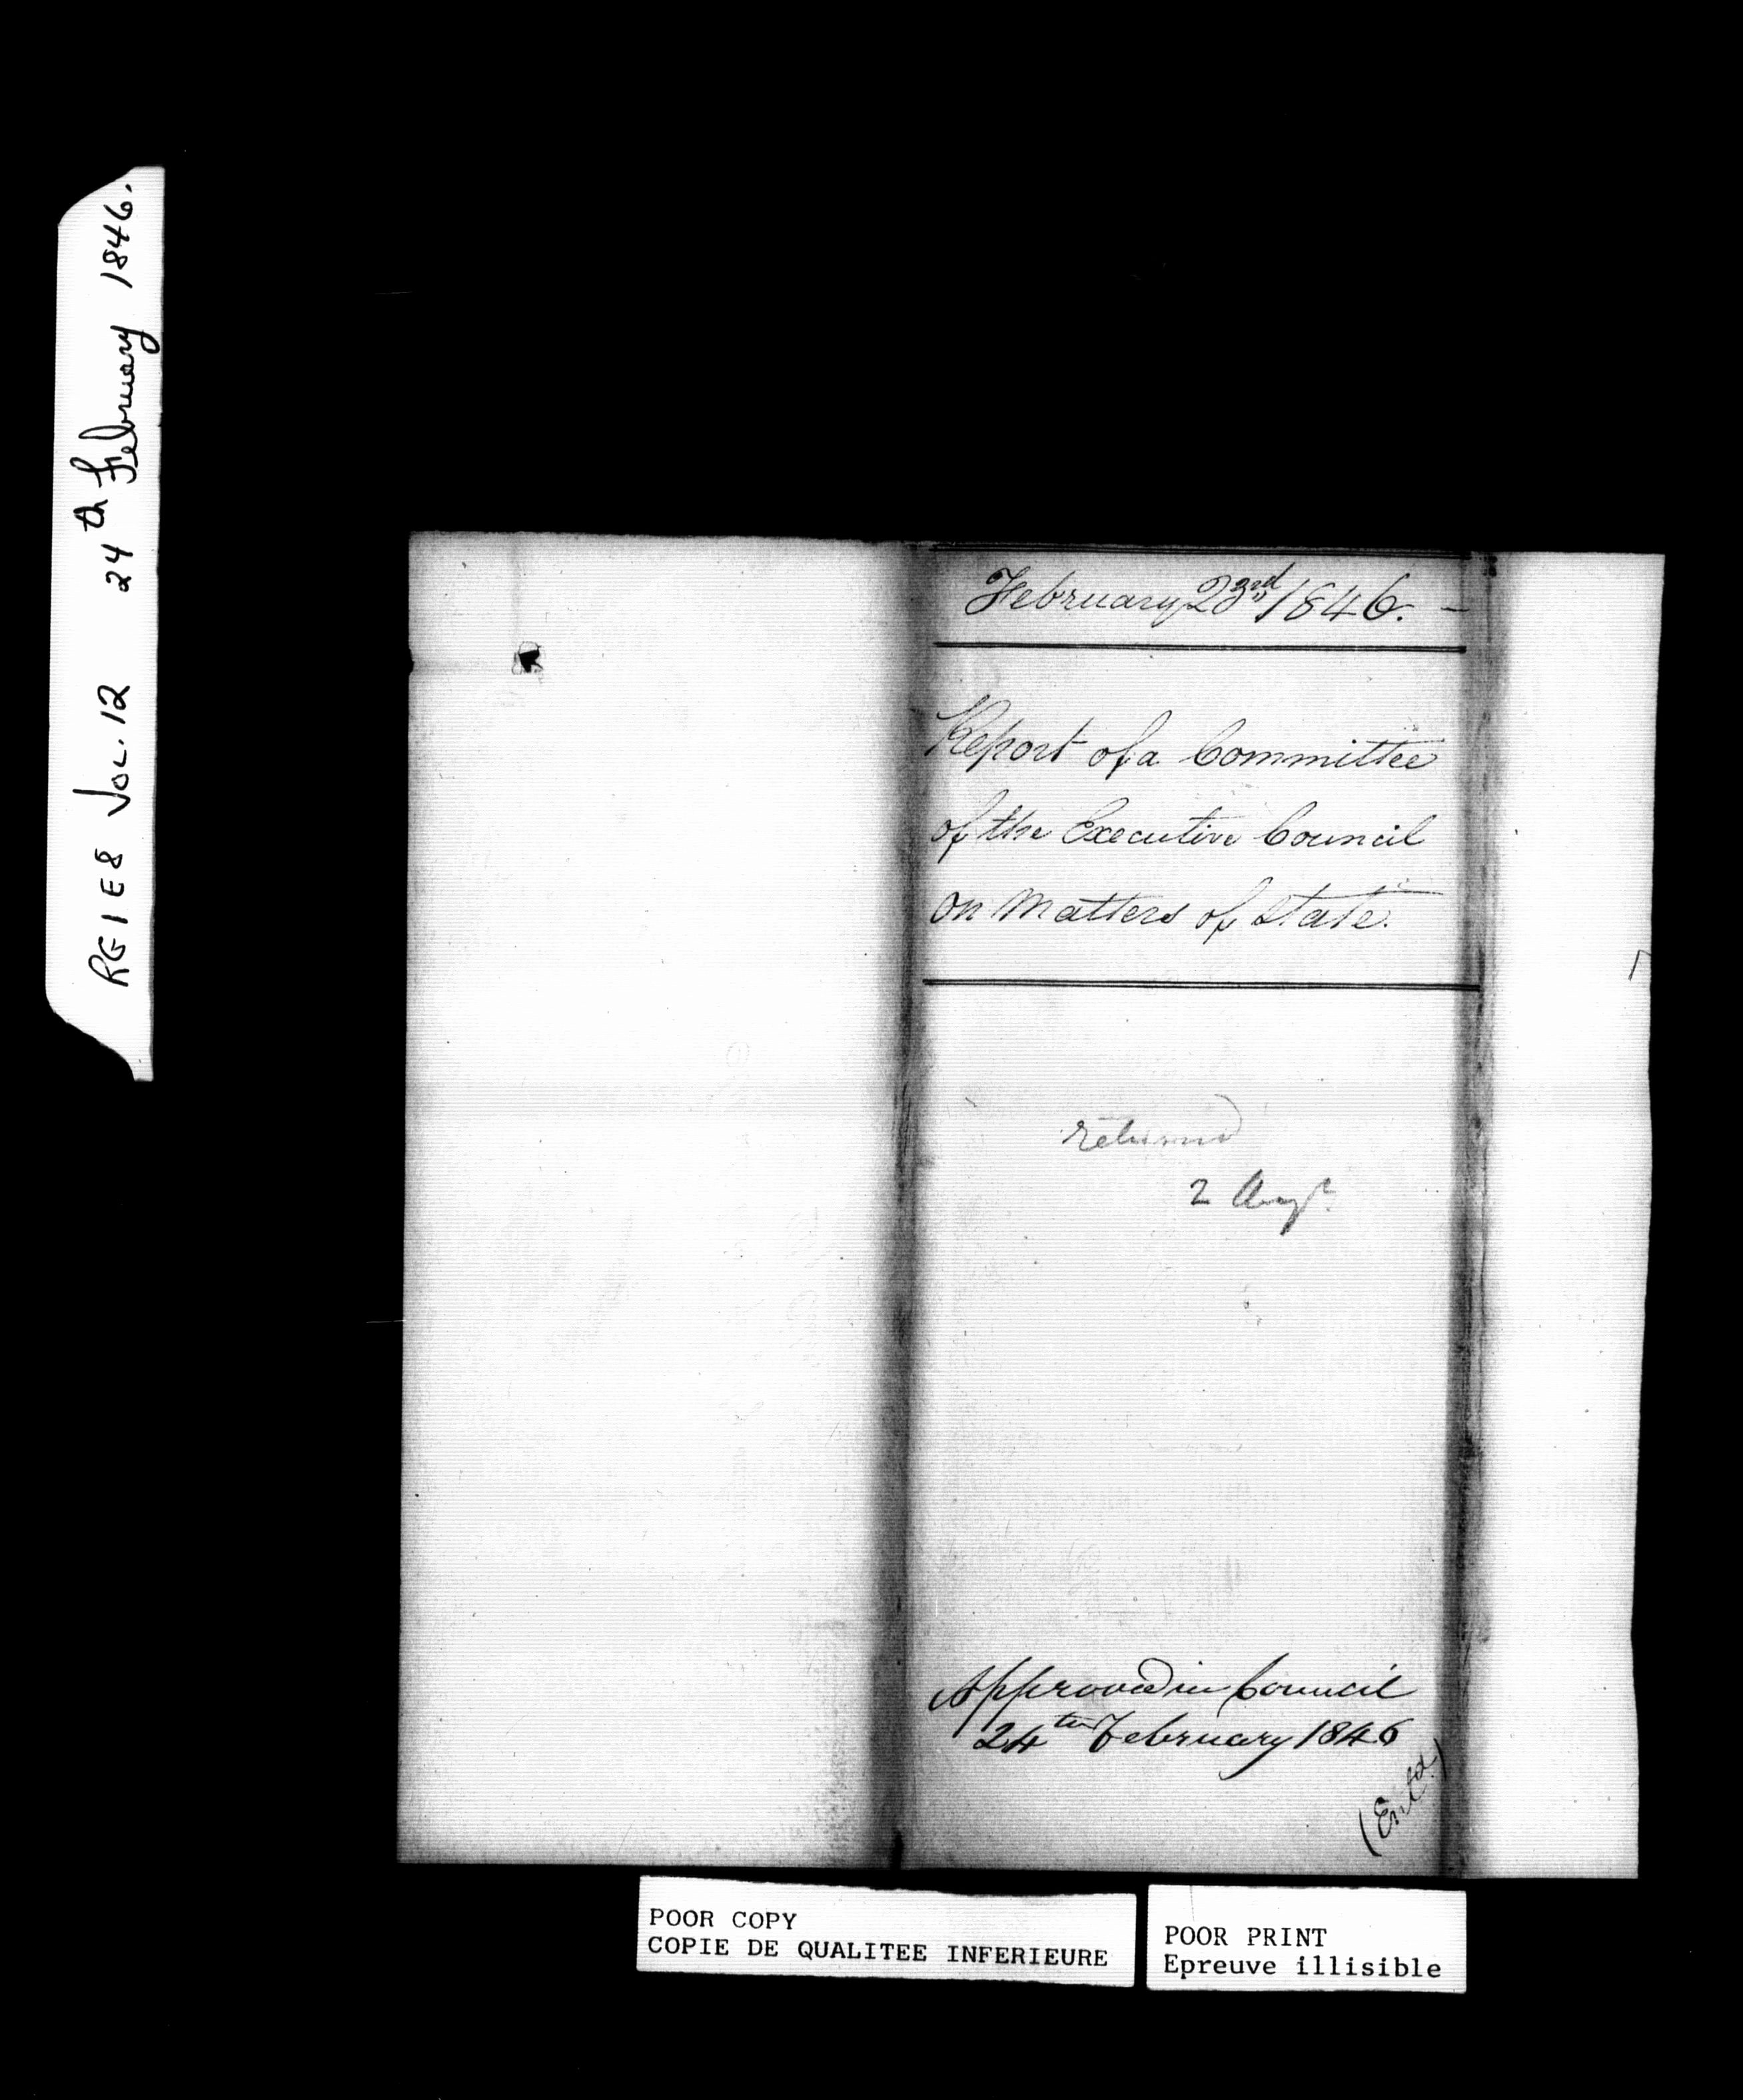 RG 1 E8 Vol. 12 24th February 1846.
February 23rd 1846. -
Report of a Committee
of the Executive Council
on Matters of State.
returned
2 Augt
Approved in Council
24th February 1846
(Entd.)
POOR COPY
COPIE DE QUALITEE INFERIEURE
POOR PRINT
Epreuve illisible